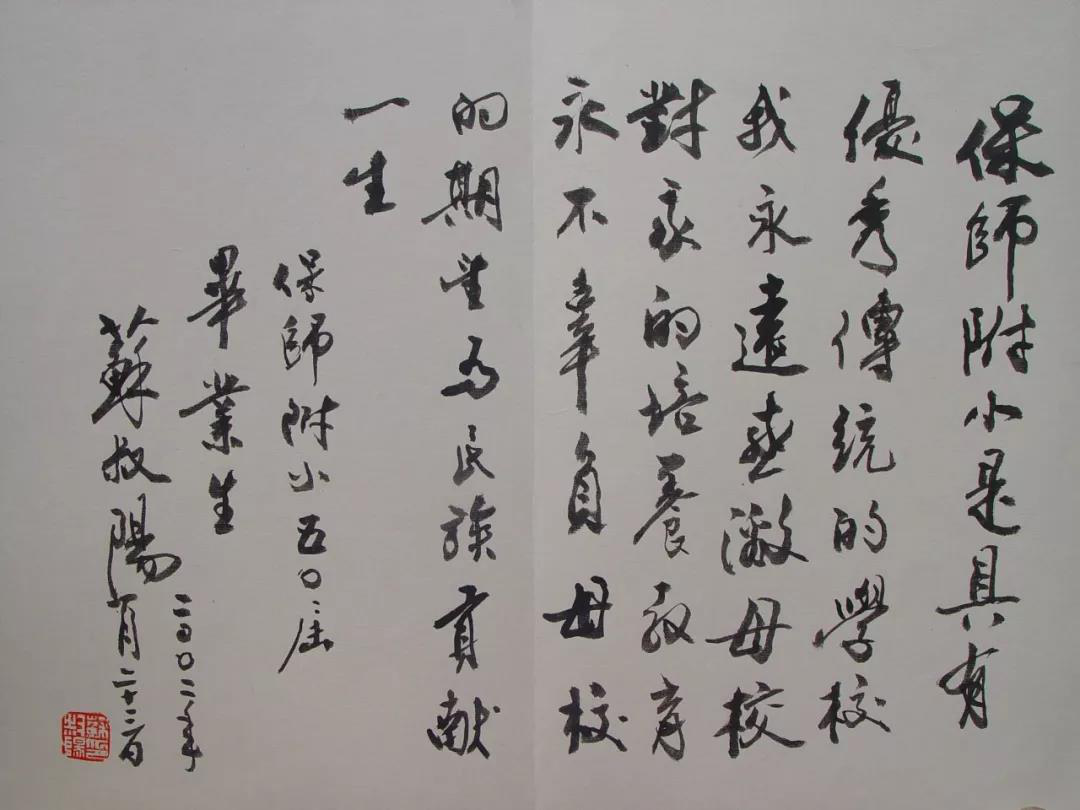 保師附小是具有
優秀傳統的學校
我永遠感激母校
對我的培養教育
永不辜負母校
的期望为民族貢献
一生
保師附小五〇届
畢業生
蘇叔陽
二〇〇二年
月二十二日